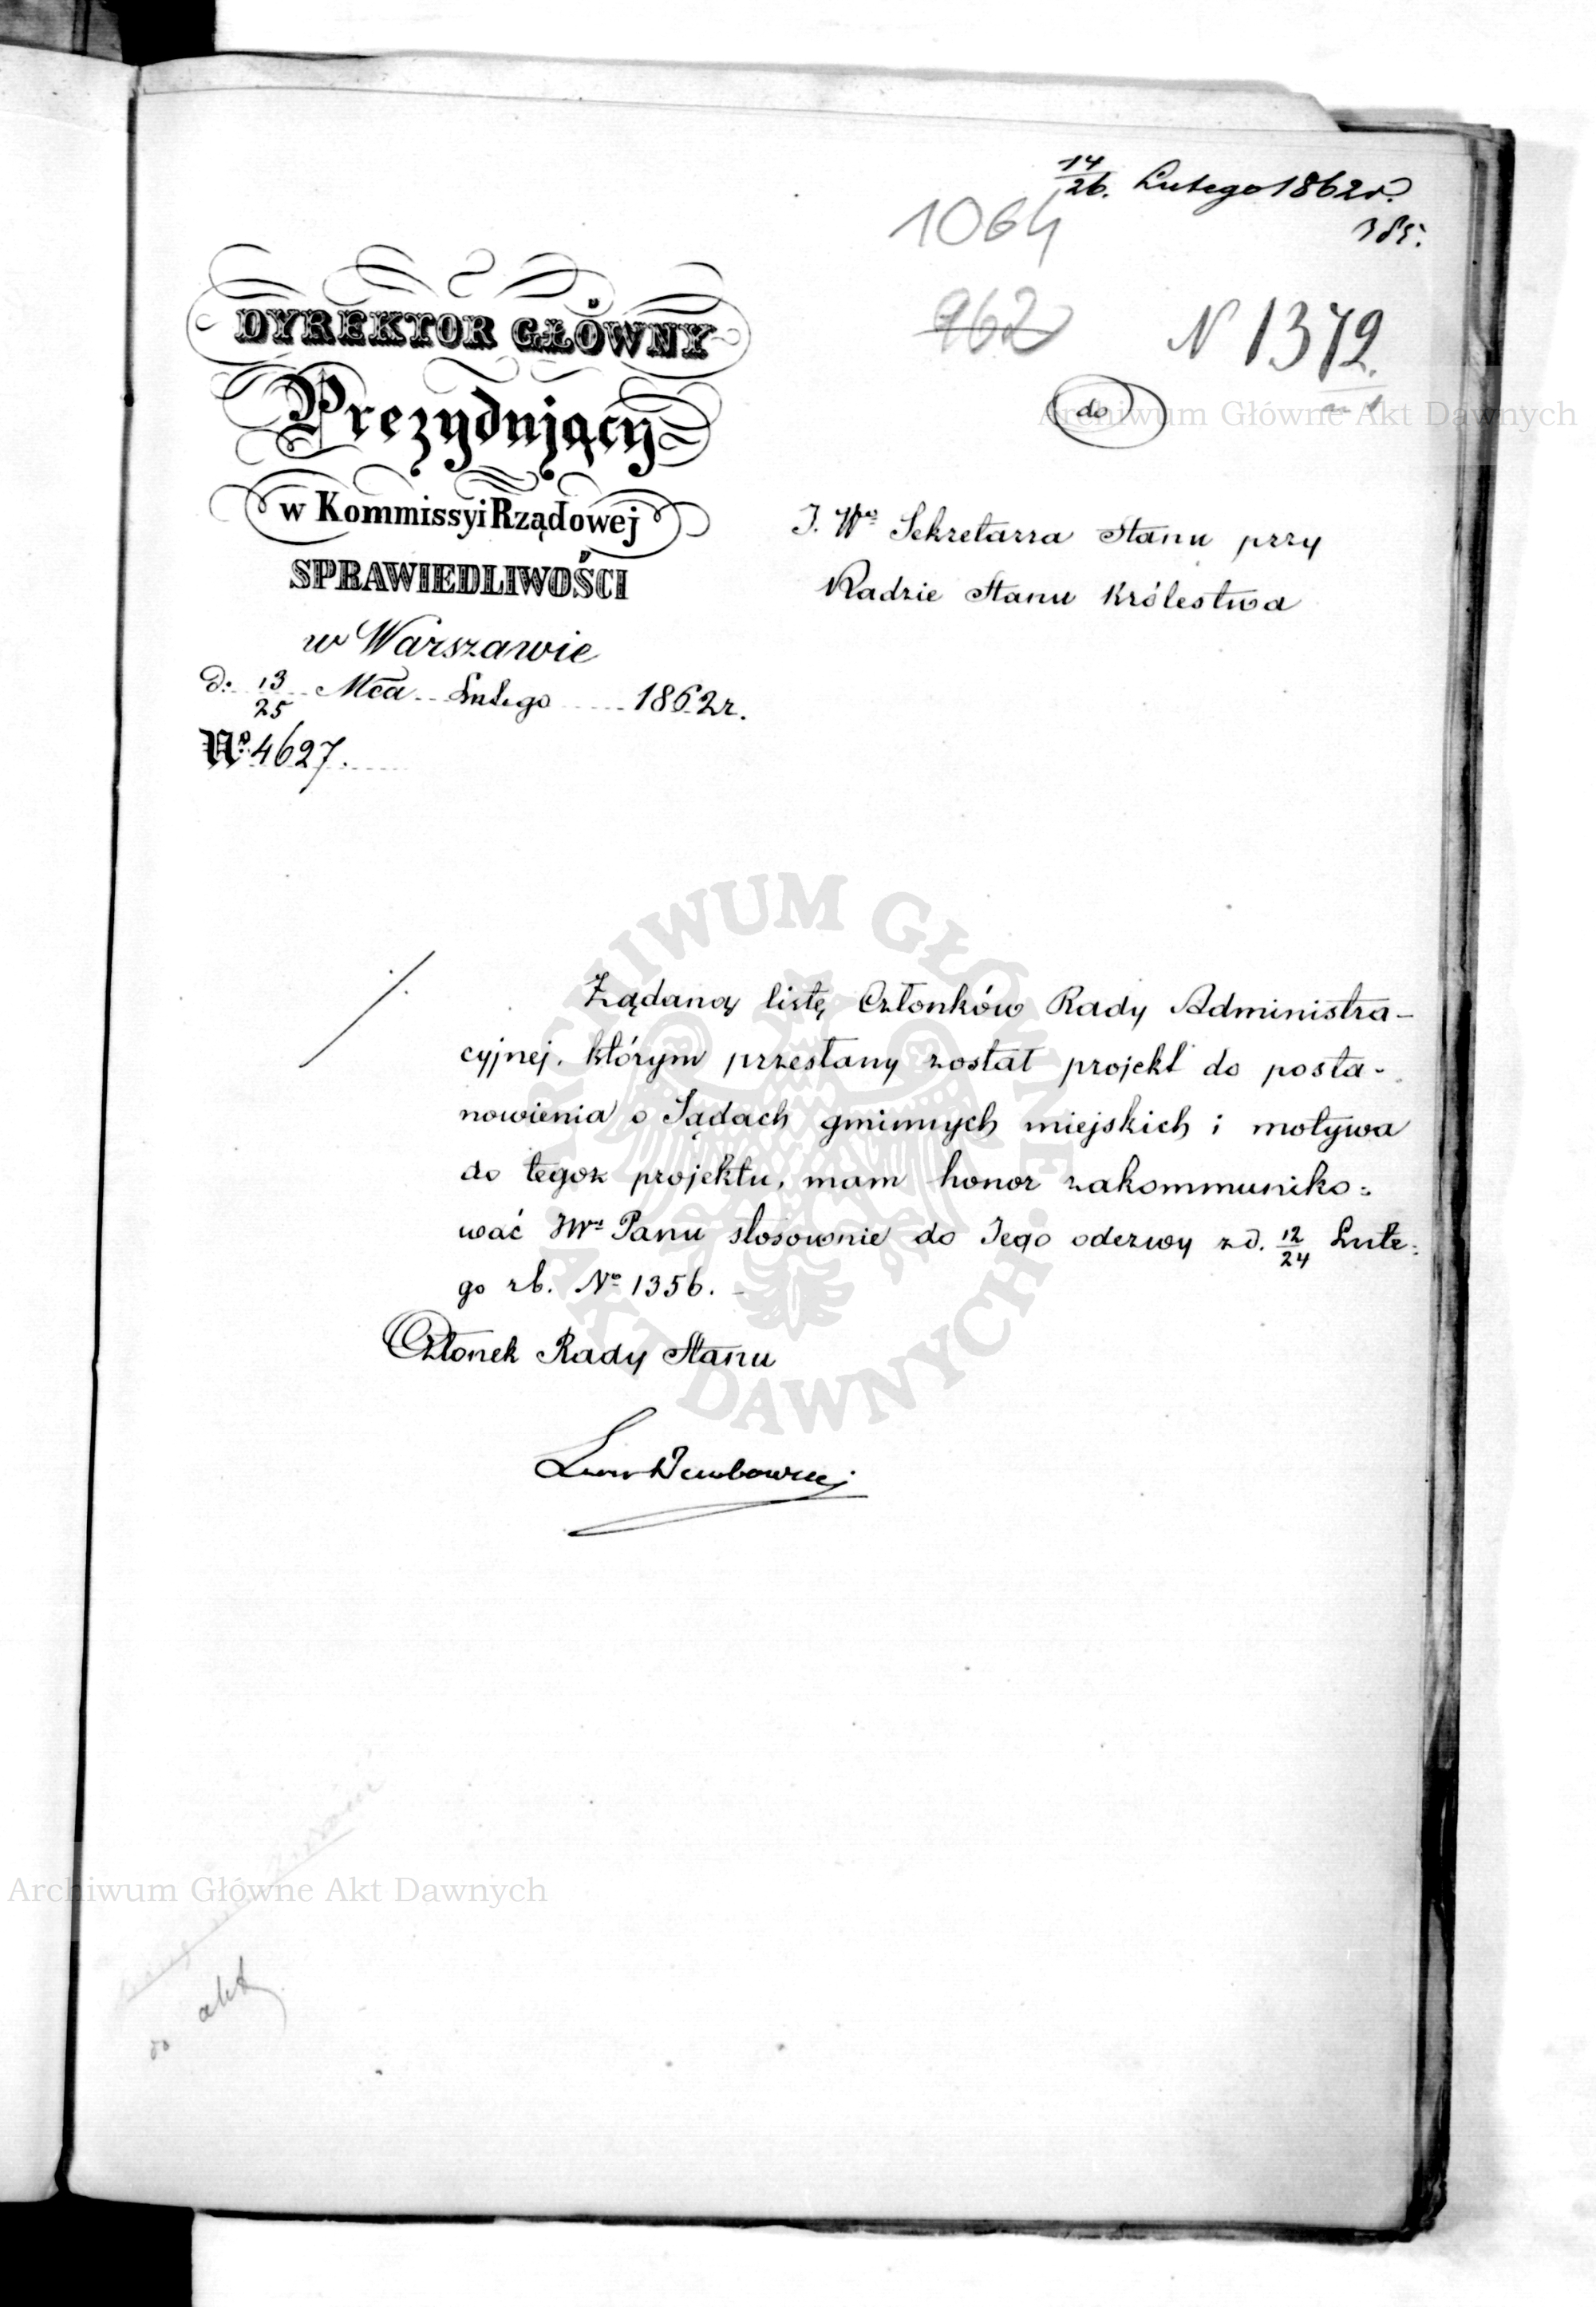 14/26. Lutego 1862 r.
385.
1064
962
N 1372.
DYREKTOR GŁÓWNY
Prezydujący
w Kommissyi Rządowej
SPRAWIEDLIWOŚCI
w Warszawie
d: 13/25 Mca Lutego 1862 r.
No. 4627.
do
J. Wo Sekretarza Stanu przy
Radzie Stanu Królestwa
Żądaną listę Członków Rady Administra-
cyjnej, którym przesłany został projekt do posta-
nowienia o Sądach gminnych miejskich i motywa
do tegoż projektu, mam honor zakommuniko-
wać JWu Panu stosownie do Jego odezwy z d. 12/24 Lute-
go rb. No 1356.
Członek Rady Stanu
do akt
Archiwum Główne Akt Dawnych
ARCHIWUM GŁÓWNE AKT DAWNYCH
Archiwum Główne Akt Dawnych